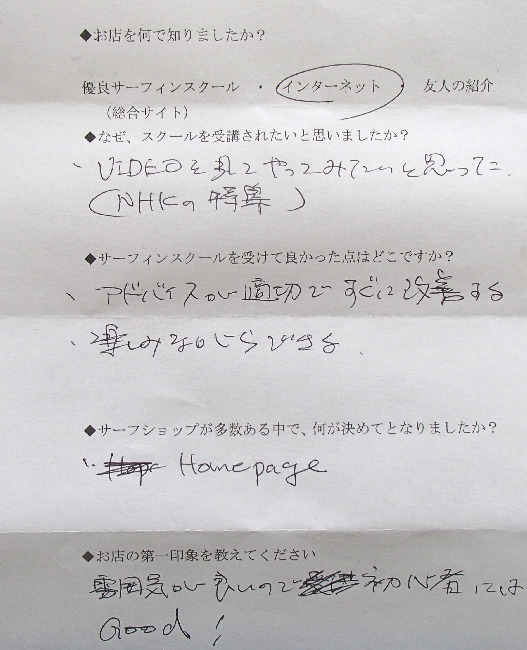 ◆お店を何で知りましたか？
優良サーフィンスクール ・ インターネット ・ 友人の紹介
（総合サイト）
◆なぜ、スクールを受講されたいと思いましたか？
、VIDEOを見てやってみたいと思った。
(NHKの特集)
◆サーフィンスクールを受けて良かった点はどこですか？
、アドバイスが適切ですぐに改善する
、楽しみながらできる.
◆サーフショップが多数ある中で、何が決めてとなりましたか？
、Homepage
◆お店の第一印象を教えてください
雰囲気が良いので初心者には
Good!